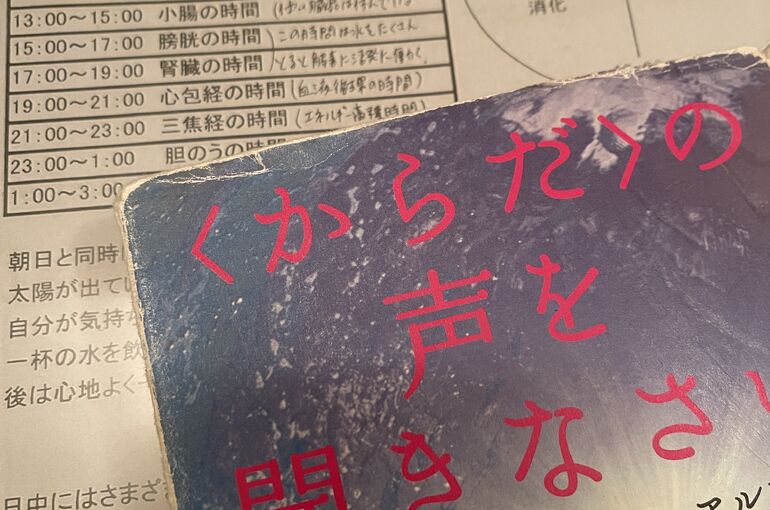 13:00～15:00 小腸の時間
消化
15:00～17:00 膀胱の時間 この時間は水をたくさん
17:00～19:00 腎臓の時間 とると解毒に活発に働く。
19:00～21:00 心包経の時間 (血液循環の時間)
21:00～23:00 三焦経の時間 (エネルギー循環時間)
23:00～1:00 胆のうの時間
1:00～3:00
朝日と同時に
太陽が出てい
自分が気持ち
一杯の水を飲
後は心地よく
日中にはさまざま
〈からだ〉の
声を
聞きなさい
アル